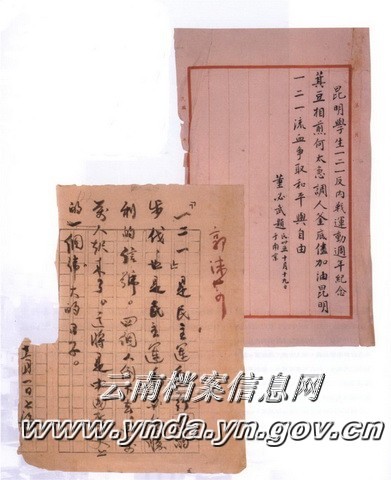 昆明學生一二一反內戰運動週年紀念
萁豆相煎何太急調人釜底值加油昆明
一二一流血爭取和平與自由
董必武題
十月十九日
于南京
郭沫若
「一二一」是民主運動的
步伐也是民主運勝
利的信號。四個人倒
萬人起來了。這將是中國
的一個偉大的日子。
云南档案信息网
www.ynda.yn.gov.cn